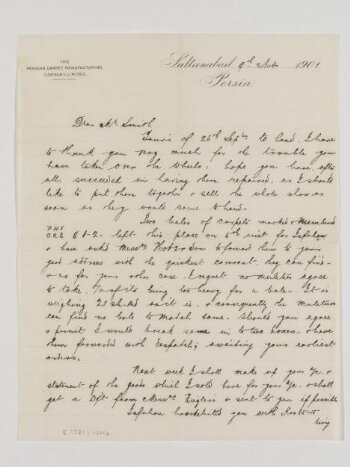 THE
PERSIAN CARPET MANUFACTURING
COMPANY, LIMITED.
Sultanabad 9th Nov 1901
Persia
Dear Mr Smith
Yours of 26th Sept to hand. I have
to thank you very much for the trouble you
have taken over the wheels. hope you have after
all succeeded in having them repaired, as I should
like to put them together & sell the whole show as
soon as they come to hand.
Two bales of carpets marked &
1-2 - left this place on 6th inst for Isfahan
& have asked Messrs Hotz & Son to forward them to your
good address with the quickest they can find -
As for your other case I regret no muleteer agree
to take, being too heavy for a bale. It is
weighing as it is. & consequently the muleteers
can find no bale to match same. Should you agree
& permit I would break same in to two boxes, & have
them forwarded with despatch; awaiting your earliest
orders.
Next week I shall make up your a/c &
statement of the goods which I sold here for your a/c. & shall
get a Dft from Messrs Zieglers & sent to you if possible
Isfahan you with
being